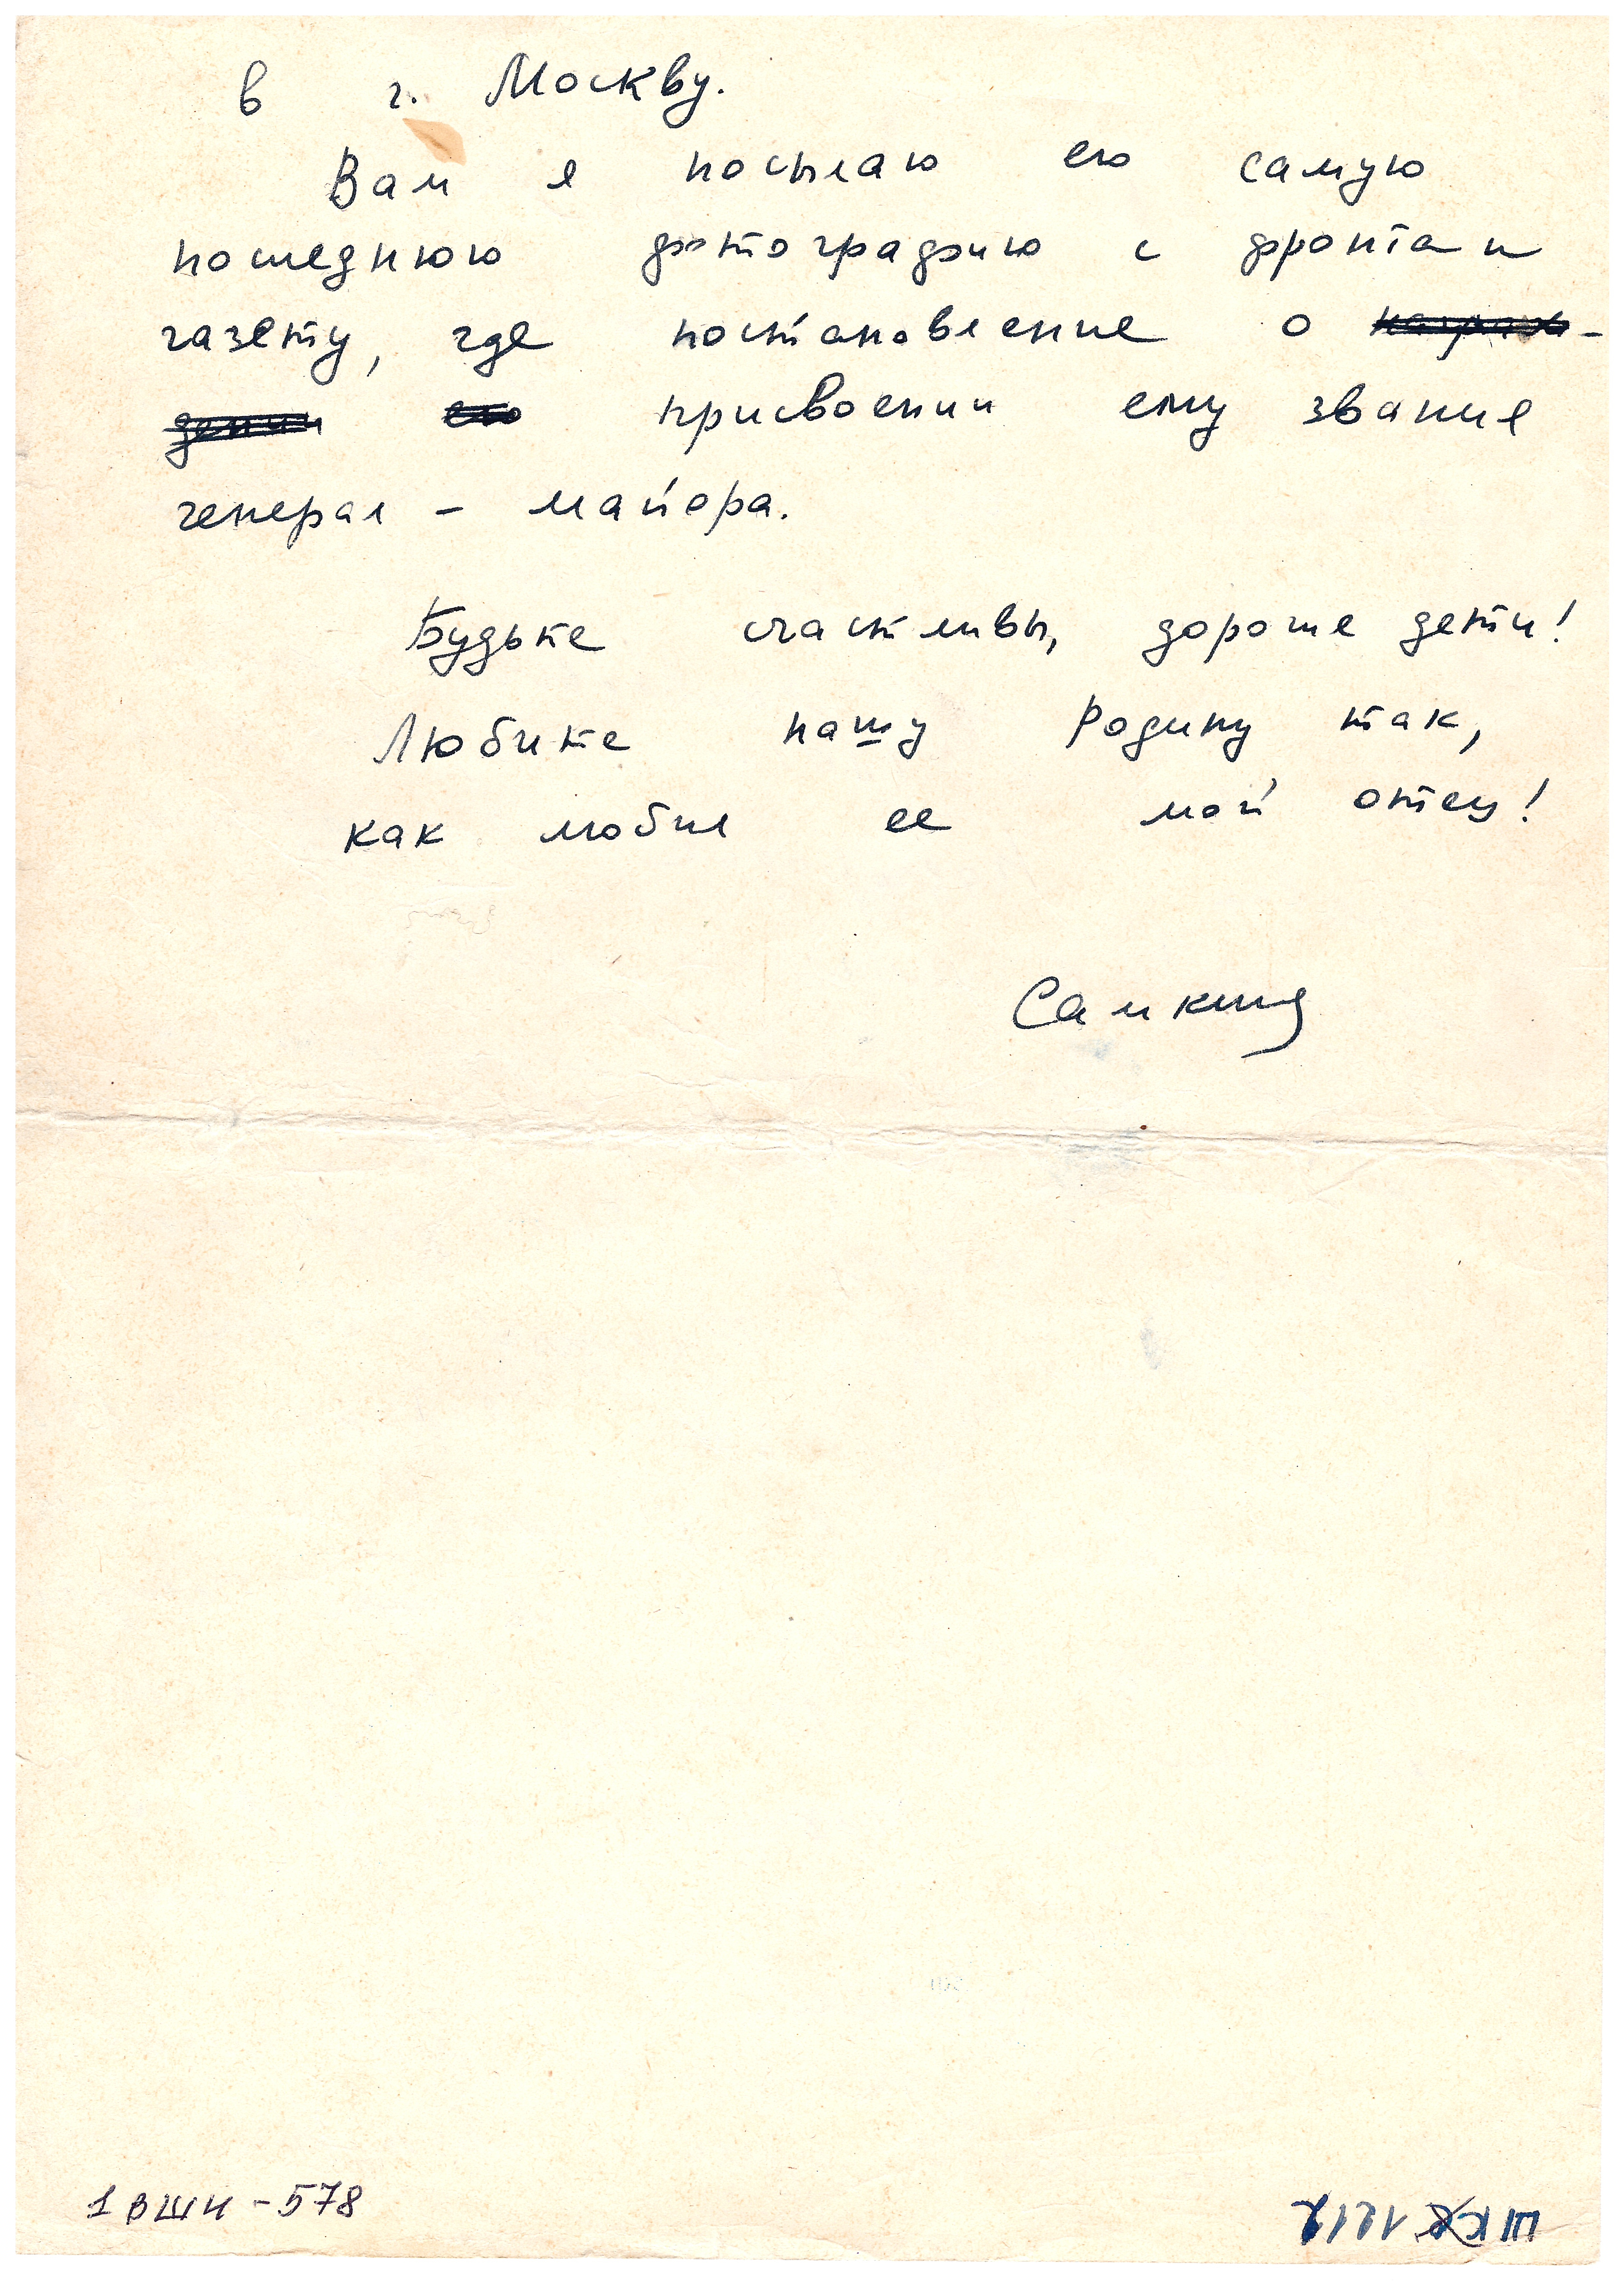 в г. Москву.
Вам я посылаю его самую
последнюю фотографию с фронта и
газету, где постановление о награж-
дении его присвоении ему звания
генерал - майора.
Будьте счастливы, дорогие дети!
Любите нашу Родину так,
как любил ее мой отец!
1 ВШИ - 578